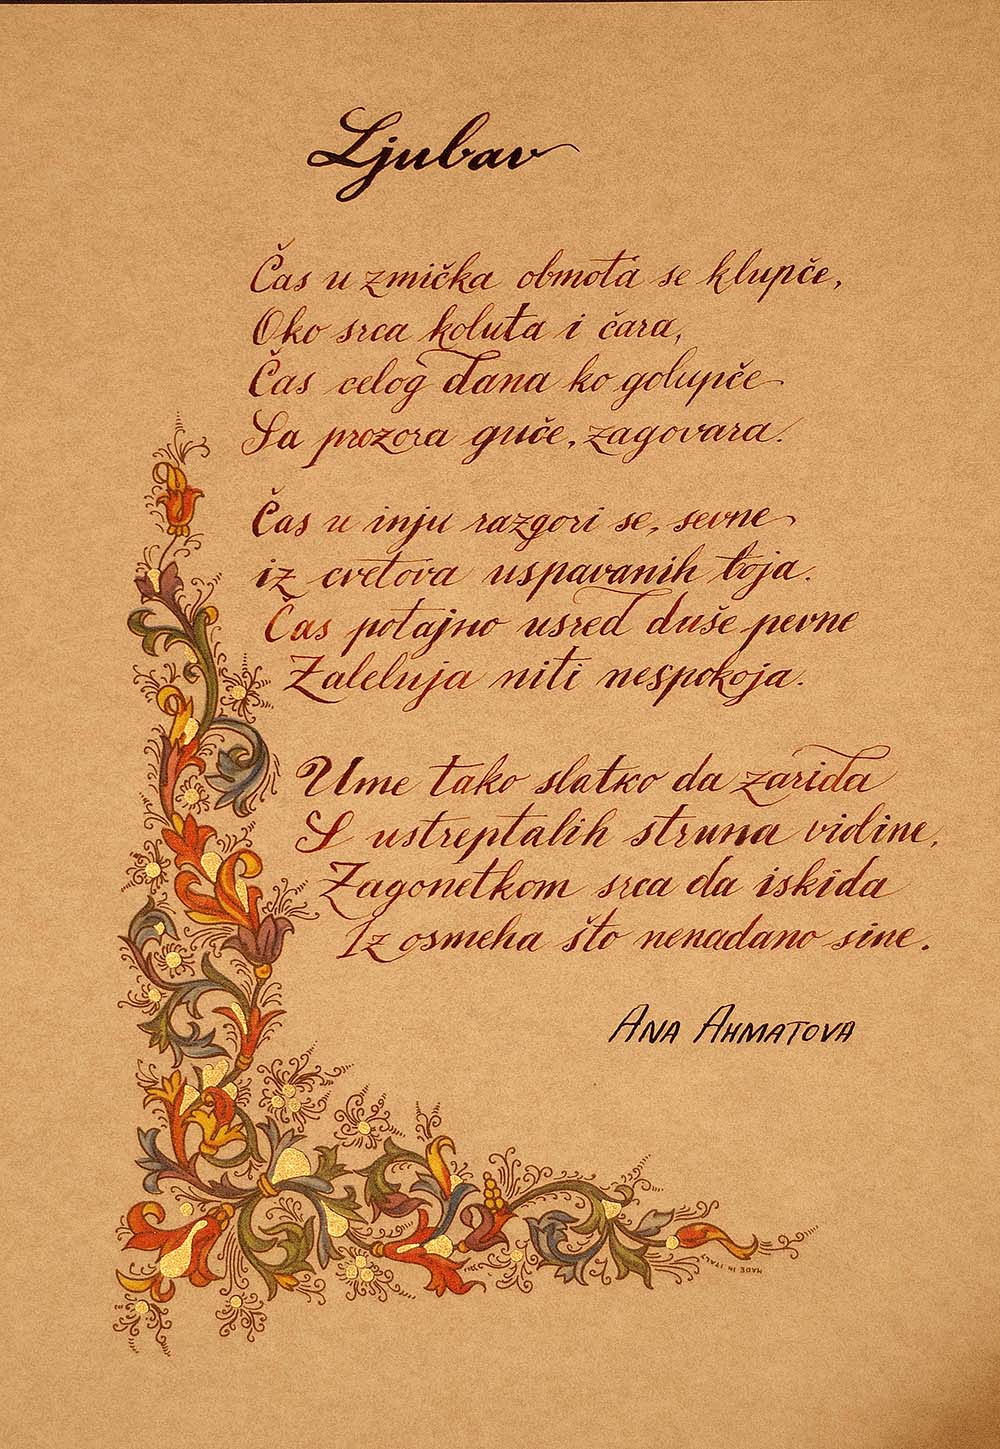 Ljubav
Čas u zmička obmota se klupče,
Oko srca koluta i čara,
Čas celog dana ko golupče
Sa prozora guče, zagovara.
Čas u inju razgori se, sevne
iz cvetova uspavanih boja.
Čas potajno usred duše pevne
Zaleluja niti nespokoja.
Ume tako slatko da zarida
S ustreptalih struna vidine,
Zagonetkom srca da iskida
Iz osmeha što nenadano sine.
ANA AHMATOVA
MADE IN ITALY